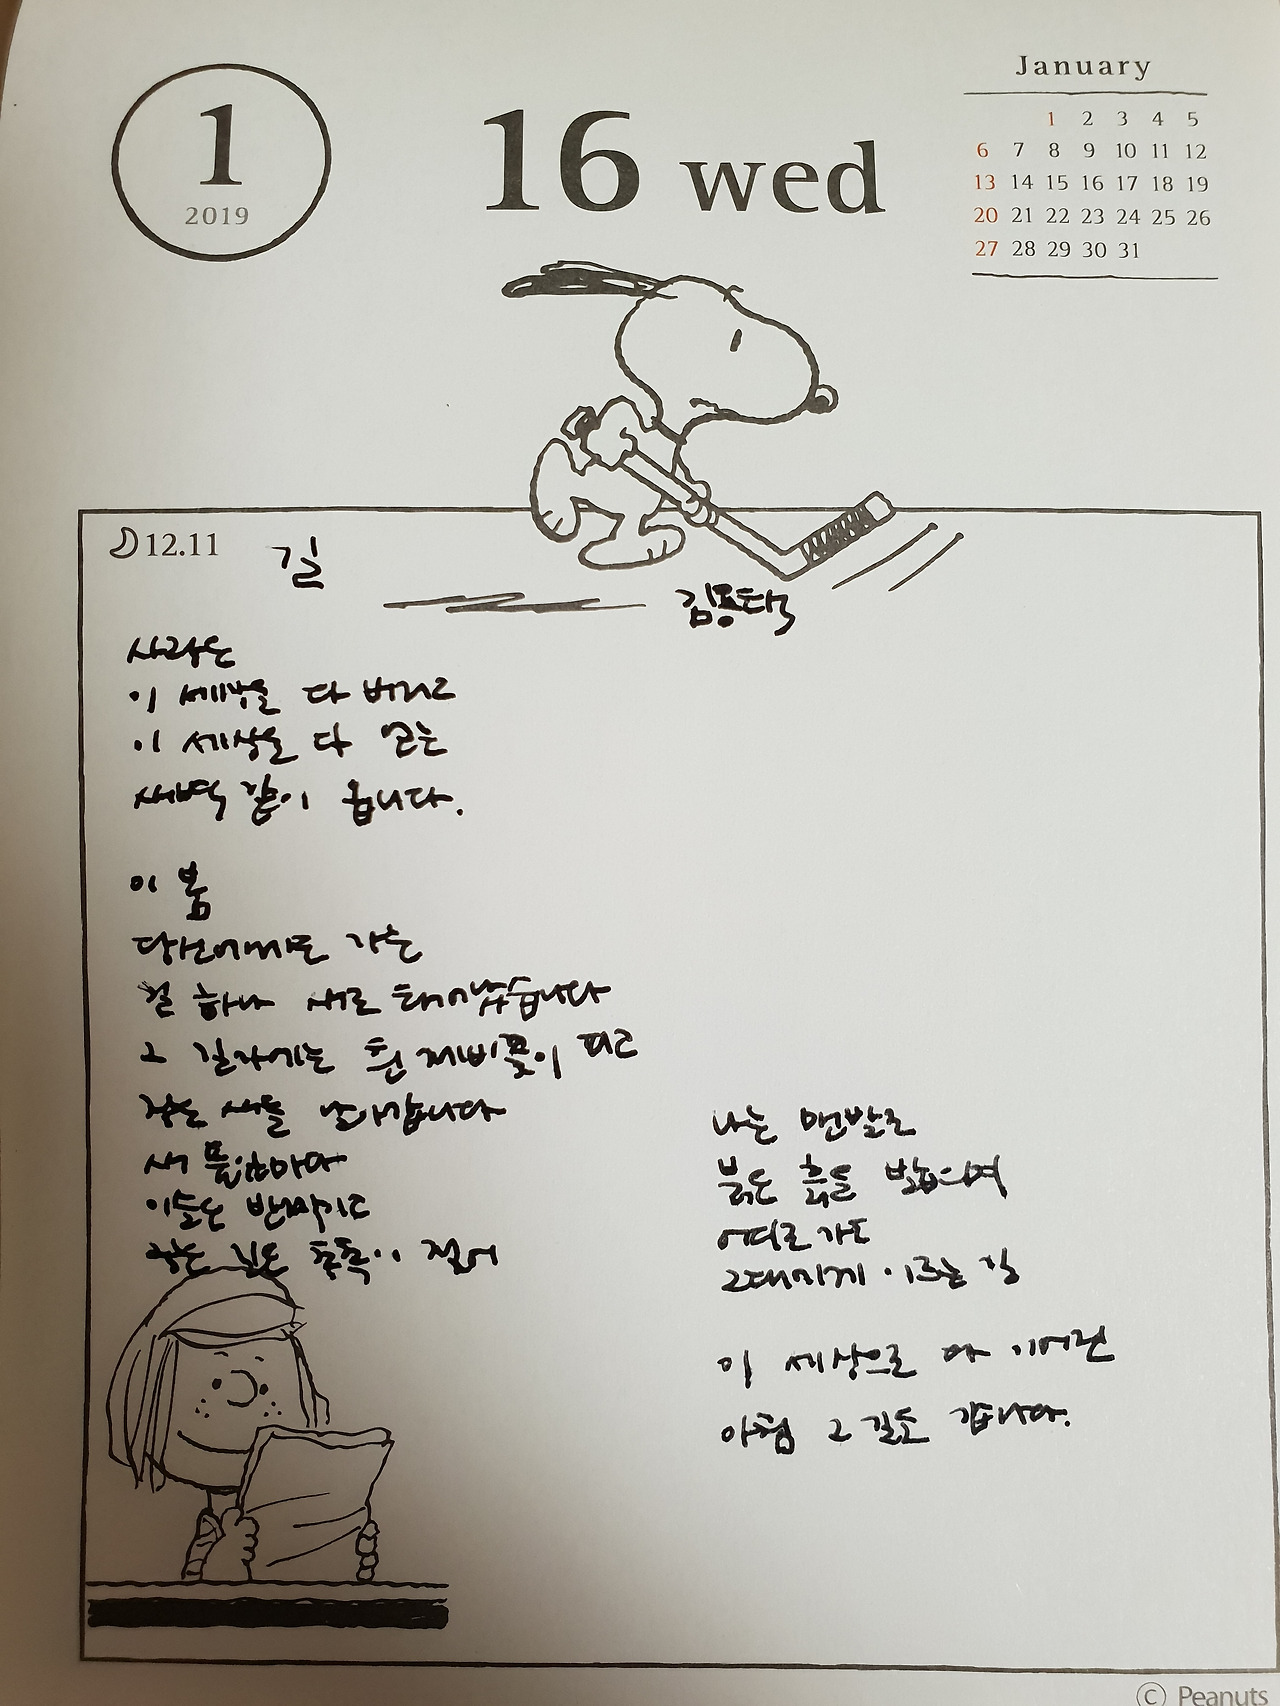 1
2019
16 wed
January
1 2 3 4 5
6 7 8 9 10 11 12
13 14 15 16 17 18 19
20 21 22 23 24 25 26
27 28 29 30 31
12.11
길
김용택
사랑은
이 세상을 다 버리고
이 세상을 다 얻는
새벽 같이 옵니다.
이 봄
당신에게로 가는
길 하나 새로 태어났습니다
그 길가에는 흰 제비꽃이 피고
작은 새들 날아갑니다
새 풀잎마다
이슬은 반짝이고
작은 길은 촉촉이 젖어
나는 맨발로
붉은 흙을 밟으며
어디로 가도
그대에게 이르는 길
이 세상으로 다 이어진
아침 그 길을 갑니다.
© Peanuts